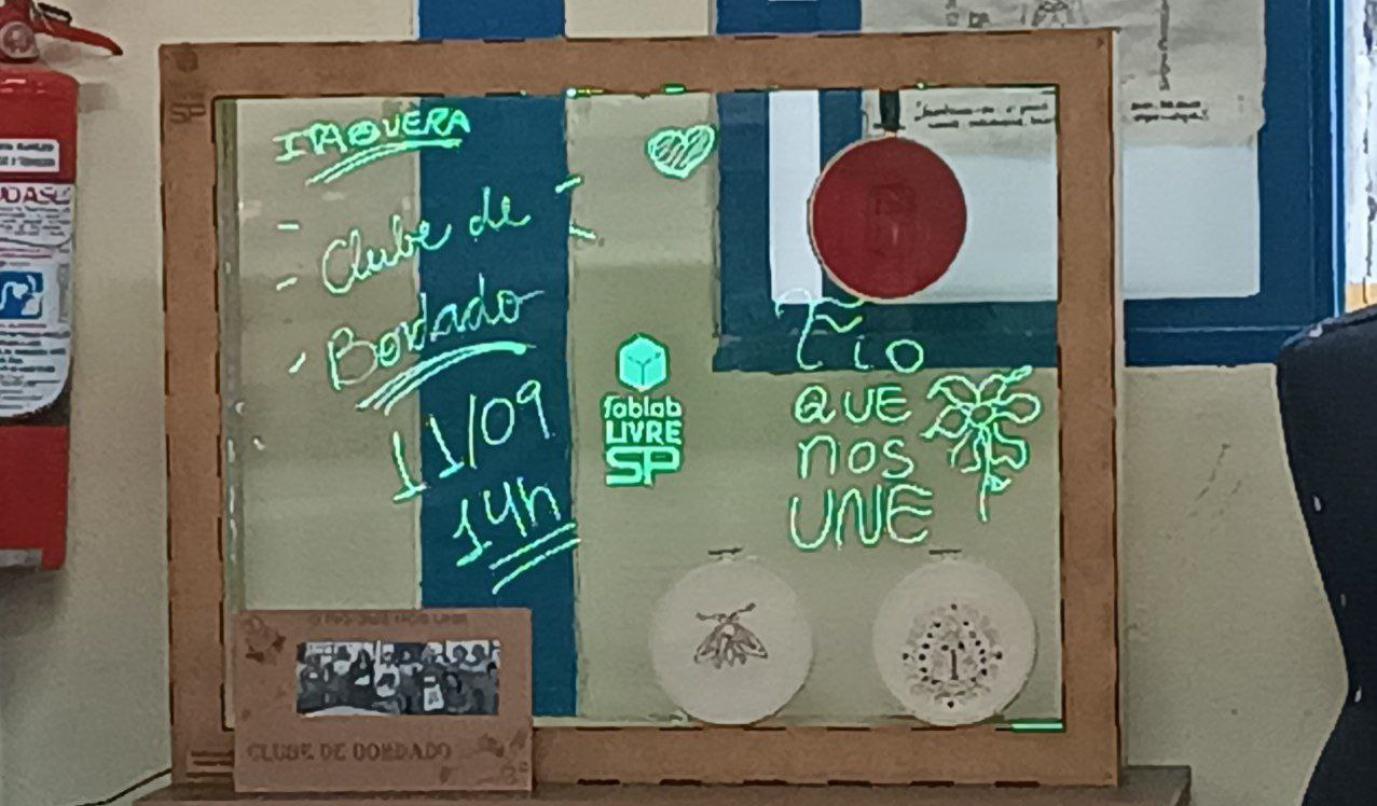 ITAQUERA
Clube de
Bordado
11/09
14h
fablab
LIVRE
SP
Fio
QUE
nos
UNE
SP
CLUBE DE BORDADO